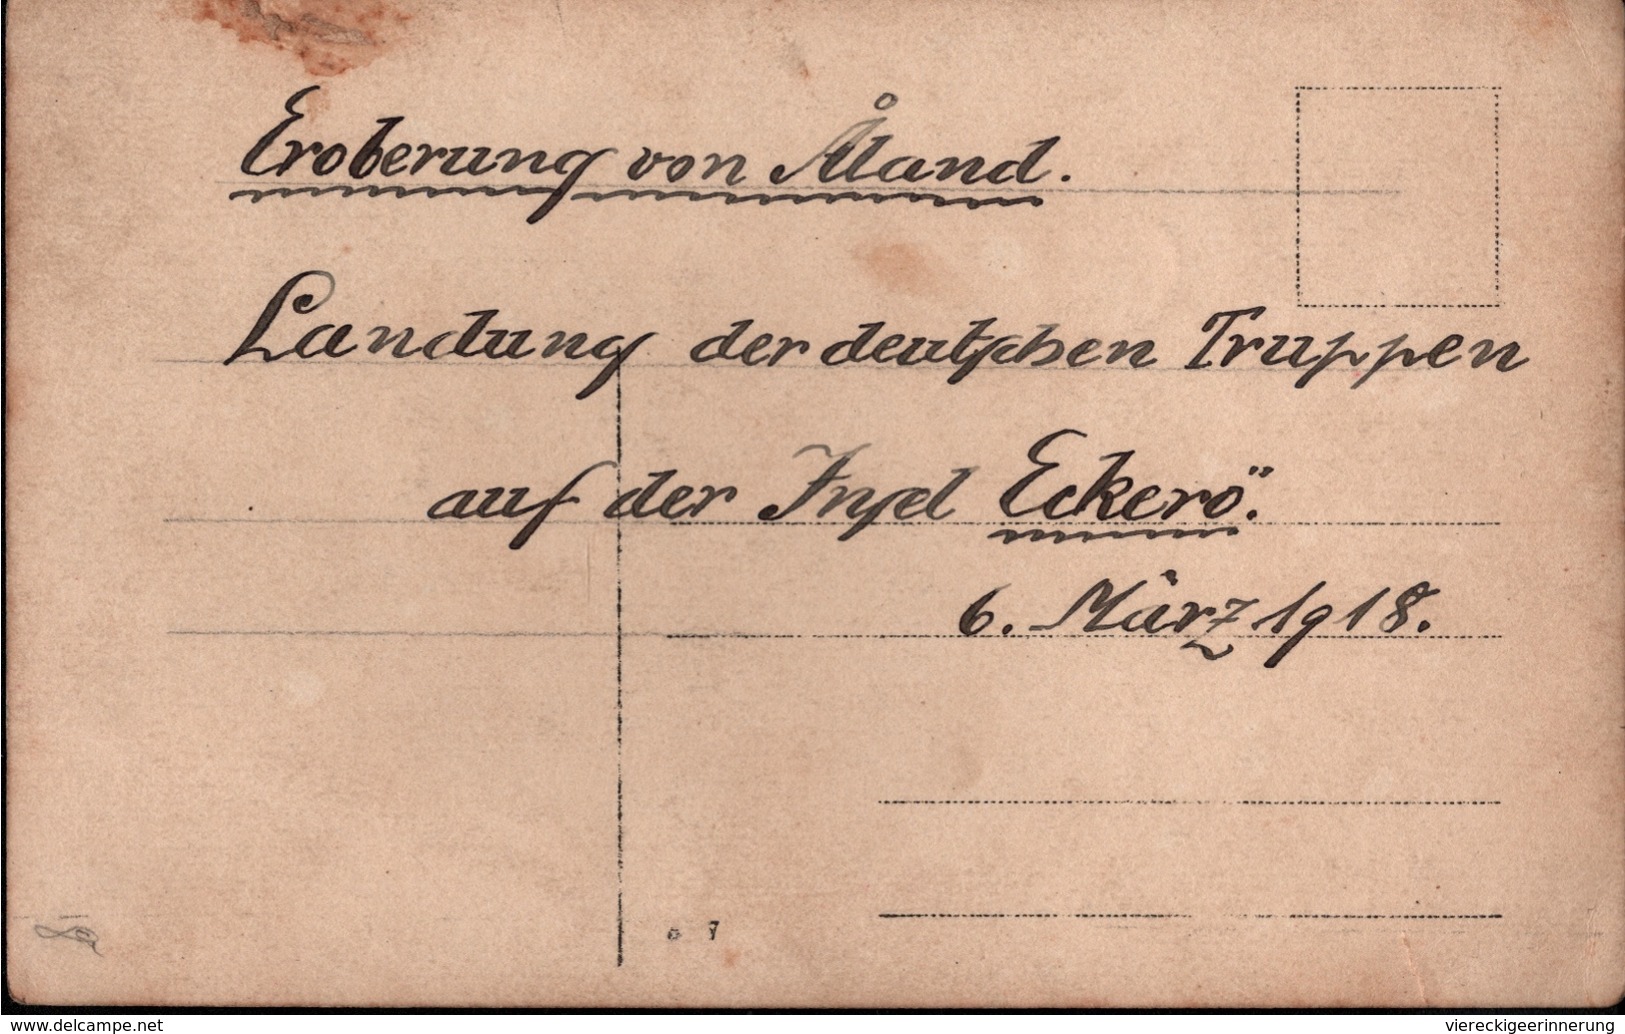 Eroberung von Åland.
Landung der deutschen Truppen
auf der Insel Eckerö.
6. März 1918.
www.delcampe.net
viereckigeerinnerung